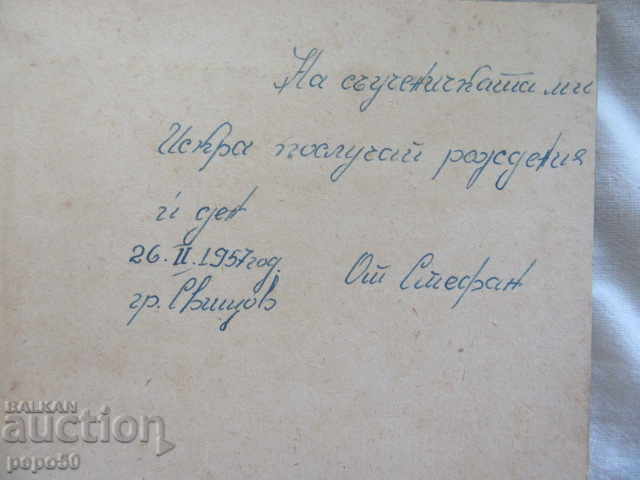 На съученичката ми
Искра послучай рождения
ѝ ден
26. II. 1957 год.
гр. Свищов
От Стефан
BALKAN
auction
popo50